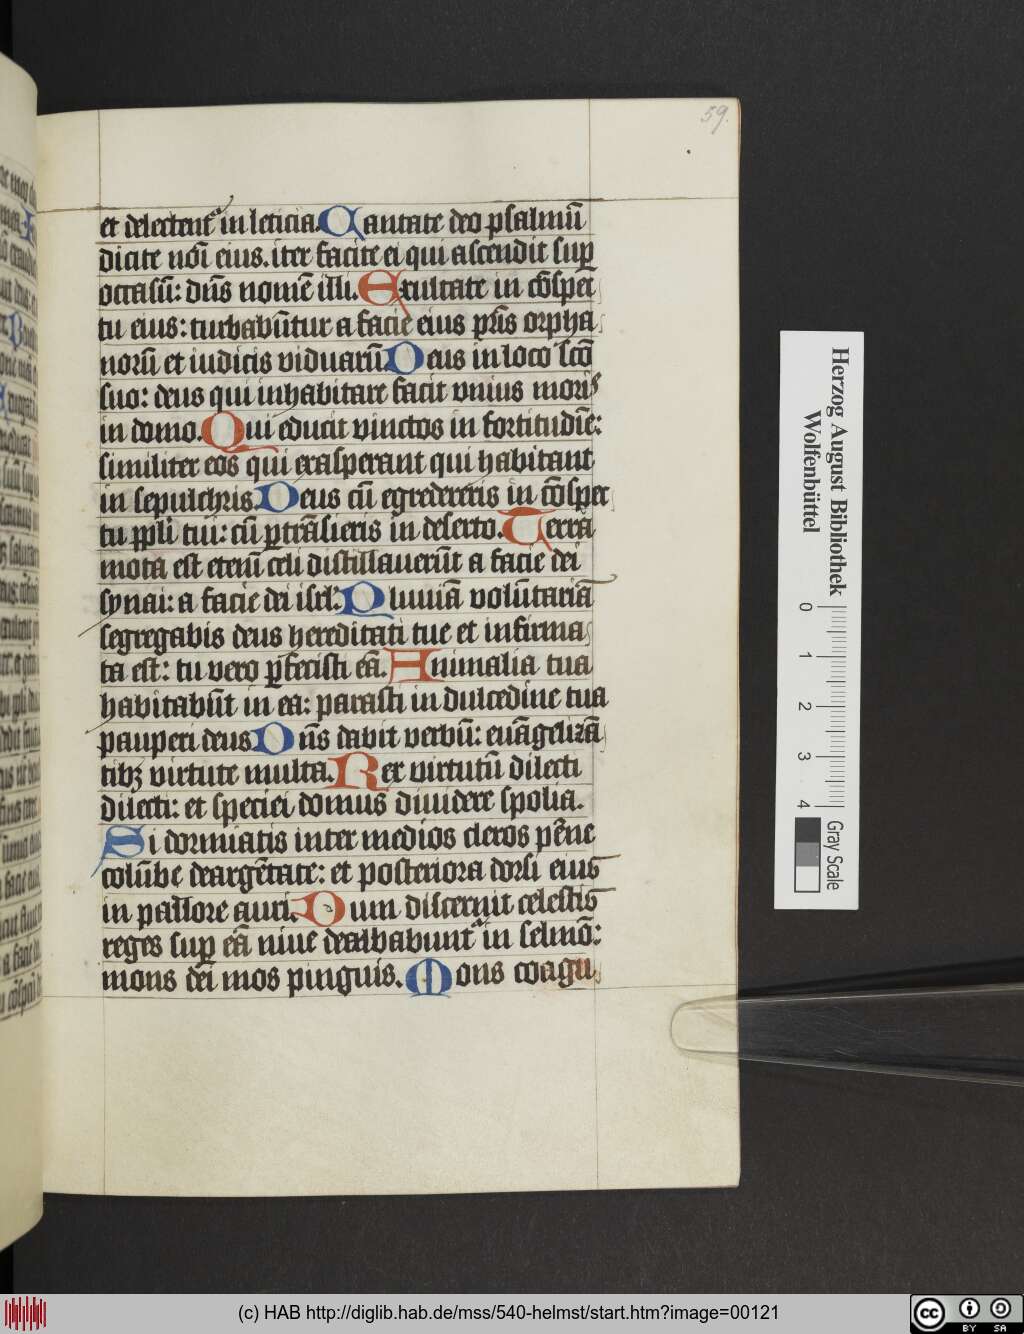 59.
et delectent᷑ in leticia. Cantate deo psalmū
dicite nōi eius. iter facite ei qui ascendit suꝑ
occasū: dn̄s nomē illi. Exultate in cōspec
tu eius: turbabūtur a facie eius pr̄is orpha
norū et iudicis viduarū Deus in loco scō
suo: deus qui inhabitare facit vnius moris
in domo. Qui educit vinctos in fortitudīe:
similiter eos qui exasperant qui habitant
in sepulchris. Deus cū egredereris in cōspec
tu ppl̄i tui: cū ꝑtrāsieris in deserto. Terra
mota est etenī celi distillauerūt a facie dei
synai: a facie dei isrl̄. Pluuiā volūtariā
segregabis deus hereditati tue et infirma
ta est: tu vero ꝑfecisti eā. Animalia tua
habitabūt in ea: parasti in dulcedine tua
pauperi deus Dn̄s dabit verbū: euāgelizā
tibꝫ virtute multa. Rex virtutū dilecti
dilecti: et speciei domus diuidere spolia.
Si dormiatis inter medios cleros pēne
colūbe deargētate: et posteriora dorsi eius
in pallore auri. Dum discernit celestis
reges suꝑ eā niue dealbabunt᷑ in selmō:
mons dei mos pinguis. Mons coagu
Herzog August Bibliothek
Wolfenbüttel
0 1 2 3 4
Gray Scale
(c) HAB http://diglib.hab.de/mss/540-helmst/start.htm?image=00121
cc BY SA